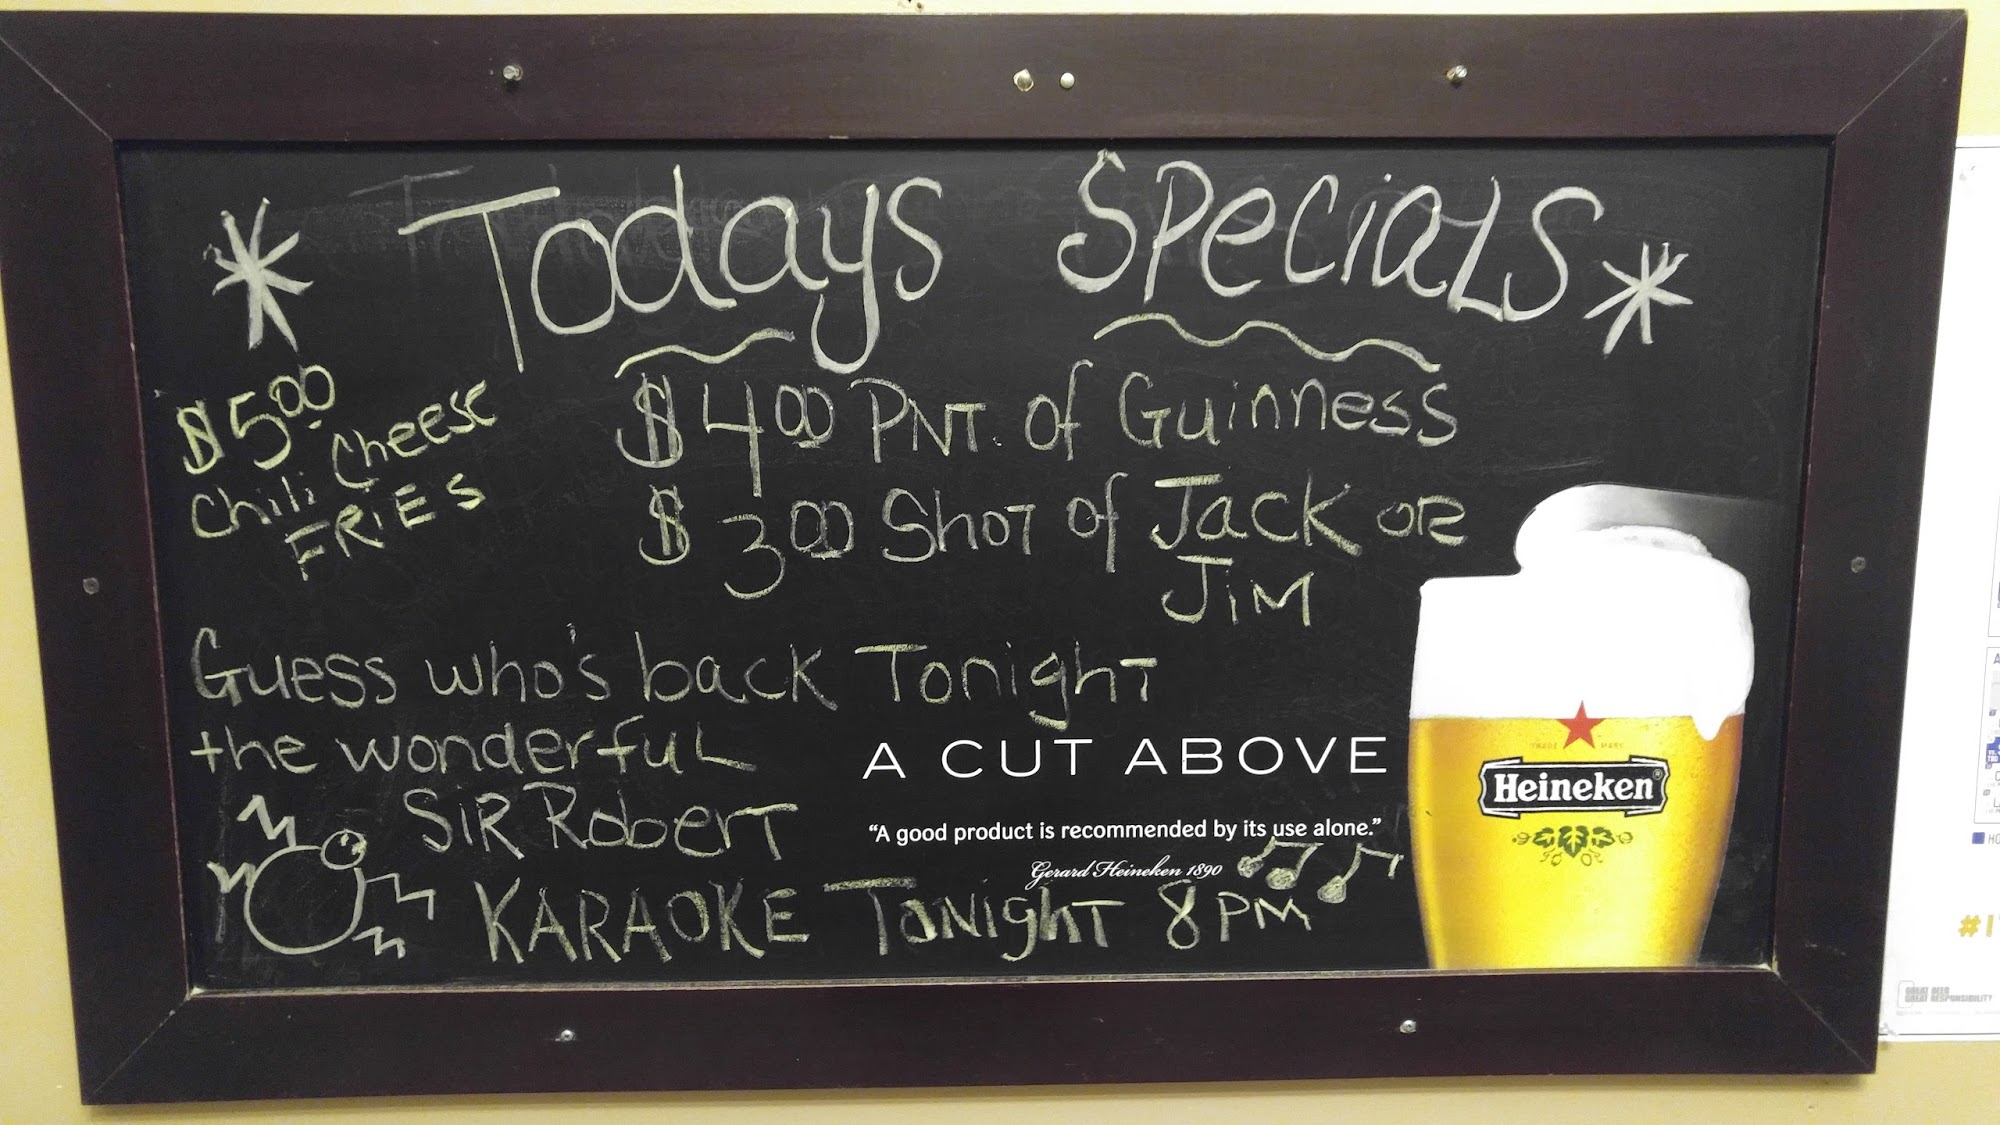 Todays Specials
$5.00
Chili Cheese
FRiES
$4.00 PNT. of Guinness
$3.00 Shot of Jack OR
JiM
Guess who's back Tonight
the wonderfuL
SiR Robert
KARAOKE Tonight 8PM
A CUT ABOVE
“A good product is recommended by its use alone.”
Gerard Heineken 1890
TRADE MARK
Heineken®
#1
GREAT BEER
GREAT RESPONSIBILITY